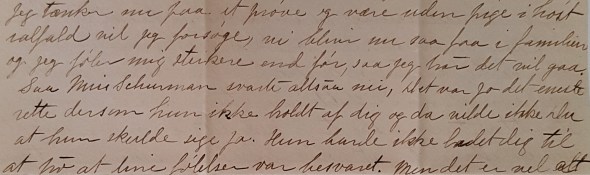 Jeg tænker nu paa at prøve og være uden pige i høst
ialfald vil jeg forsøge, vi blir nu saa faa i familien
og jeg føler mig sterkere end før, saa jeg tror det vil gaa.
Saa Miss Schurman svarte altsaa nei, det var jo det eneste
rette dersom hun ikke holdt af dig og da vilde ikke du
at hun skulde sige ja. Hun burde ikke ladet dig til
at tro at dine følelser var besvaret. Men det er vel alt